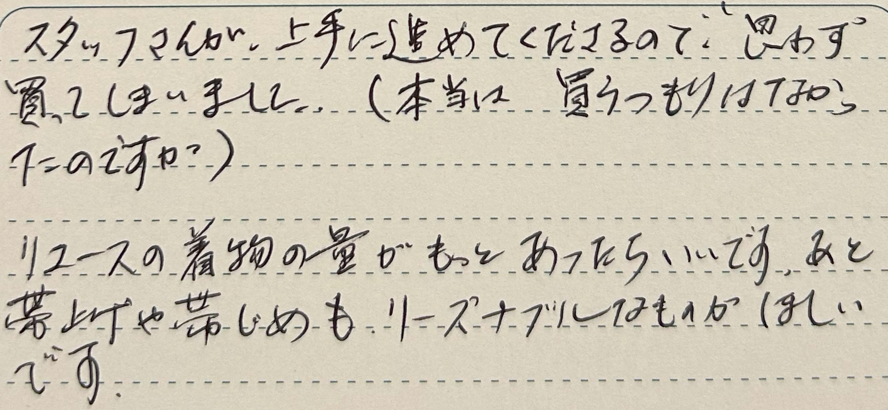 スタッフさんが、上手に進めてくださるので、思わず
買ってしまいまして、、(本当は 買うつもりはなかっ
たのですが)
リユースの着物の量がもっとあったらいいです。あと
帯上げや帯じめも、リーズナブルなものがほしい
です。